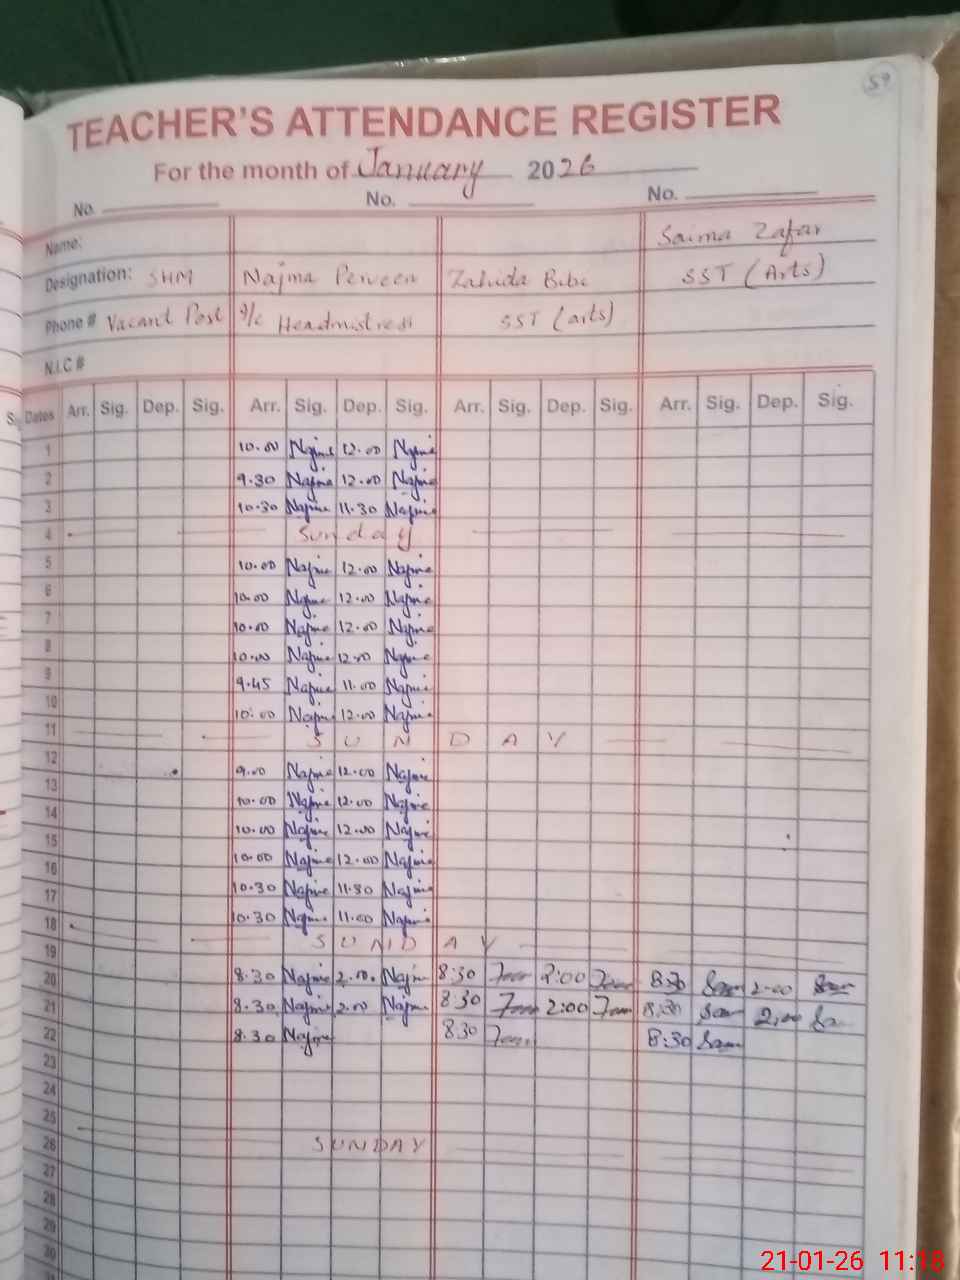 59
TEACHER'S ATTENDANCE REGISTER
For the month of January 2026
No. No. No.
Name: Saima Zafar
Designation: SHM Najma Perveen Zahida Bibi SST (Arts)
Phone # Vacant Post I/C Headmistress SST (arts)
N.I.C #
Dates Arr. Sig. Dep. Sig. Arr. Sig. Dep. Sig. Arr. Sig. Dep. Sig. Arr. Sig. Dep. Sig.
1 10.00 Najma 12.00 Najma
2 9.30 Najma 12.00 Najma
3 10.30 Najma 11.30 Najma
4 Sunday
5 10.00 Najma 12.00 Najma
6 10.00 Najma 12.00 Najma
7 10.00 Najma 12.00 Najma
8 10.00 Najma 12.00 Najma
9 9.45 Najma 11.00 Najma
10 10.00 Najma 12.00 Najma
11 SUNDAY
12 9.00 Najma 12.00 Najma
13 10.00 Najma 12.00 Najma
14 10.00 Najma 12.00 Najma
15 10.00 Najma 12.00 Najma
16 10.30 Najma 11.30 Najma
17 10.30 Najma 11.00 Najma
18 SUNDAY
19 8.30 Najma 2.00 Najma 8:30 2:00 8:30 2:00
20 8.30 Najma 2.00 Najma 8:30 2:00 8:30 2:00
21 8.30 Najma 8:30 8:30
22
23
24
25 SUNDAY
26
27
28
29
30
21-01-26 11:18